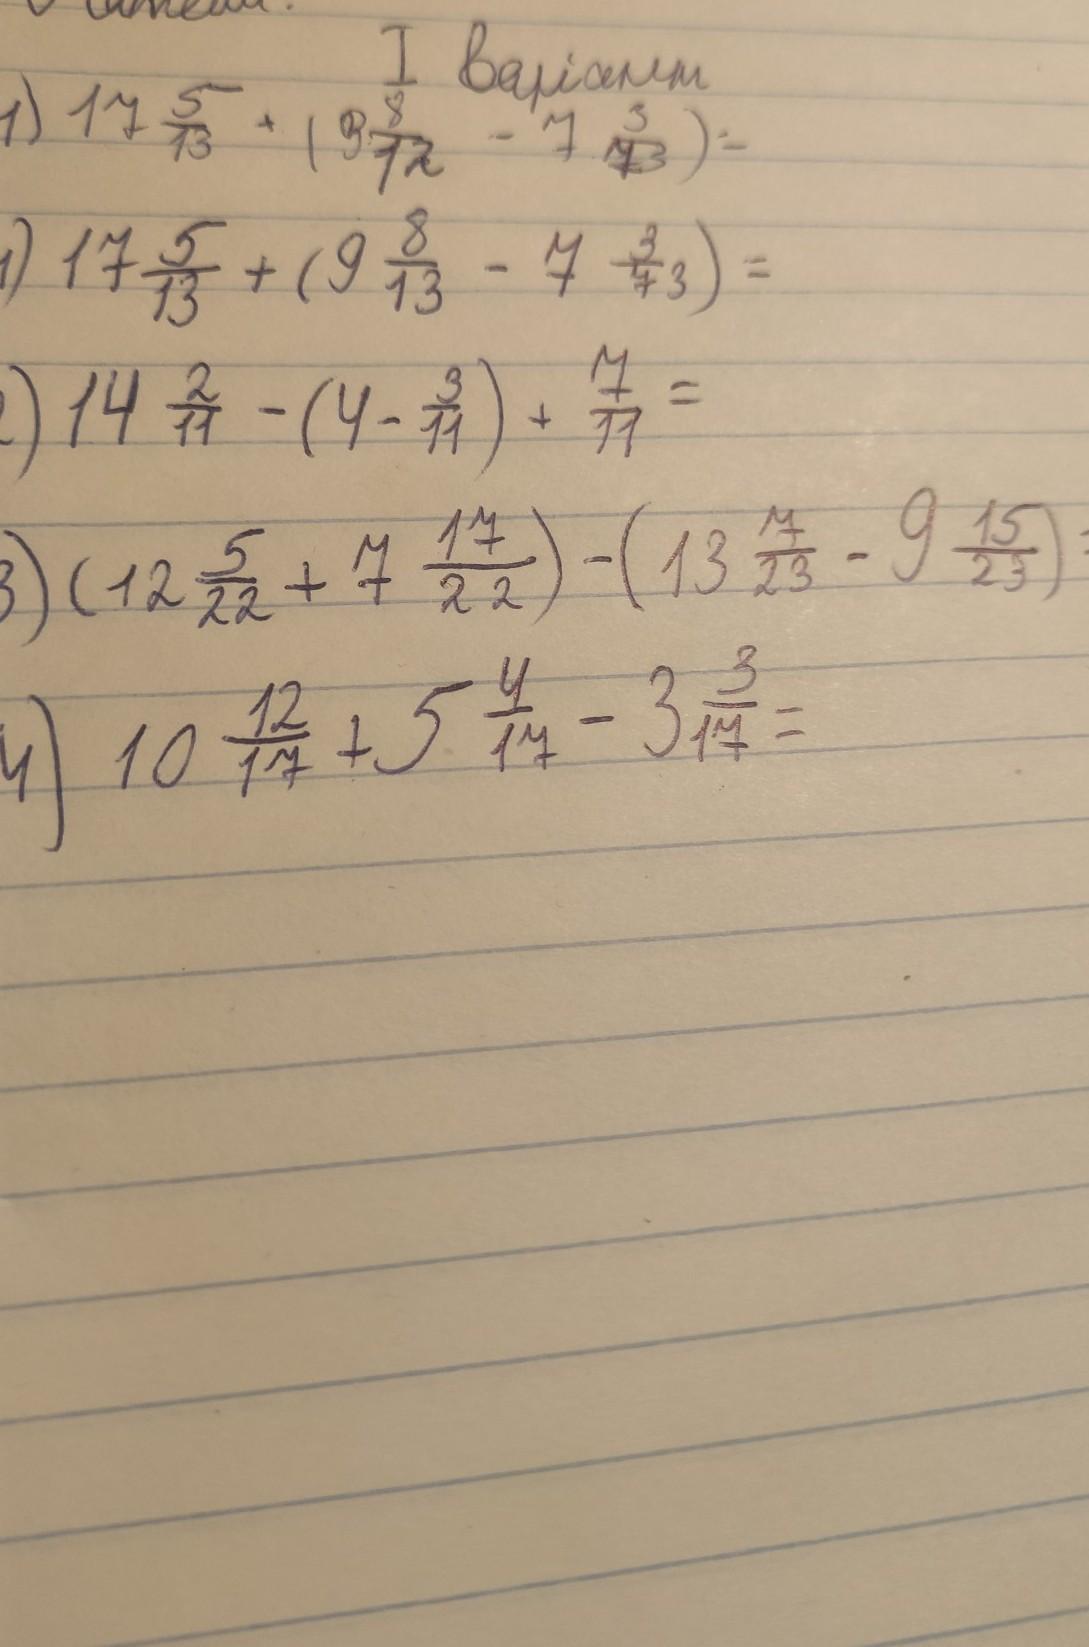 I варіант
1) 17 5/13 + (9 8/12 - 7 3/13) =
1) 17 5/13 + (9 8/13 - 7 3/13) =
2) 14 2/11 - (4 - 3/11) + 7/11 =
3) (12 5/22 + 7 17/22) - (13 7/23 - 9 15/23) =
4) 10 12/17 + 5 4/17 - 3 3/17 =